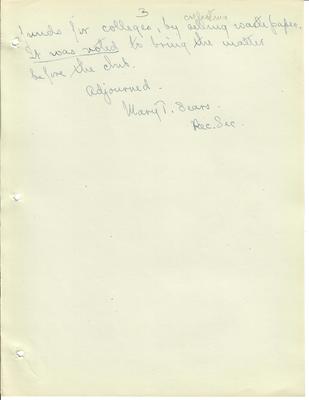 3
collecting
funds for colleges, by selling wastepaper.
It was voted to bring the matter
before the club.
Adjourned.
Mary T. Sears
Rec. Sec.